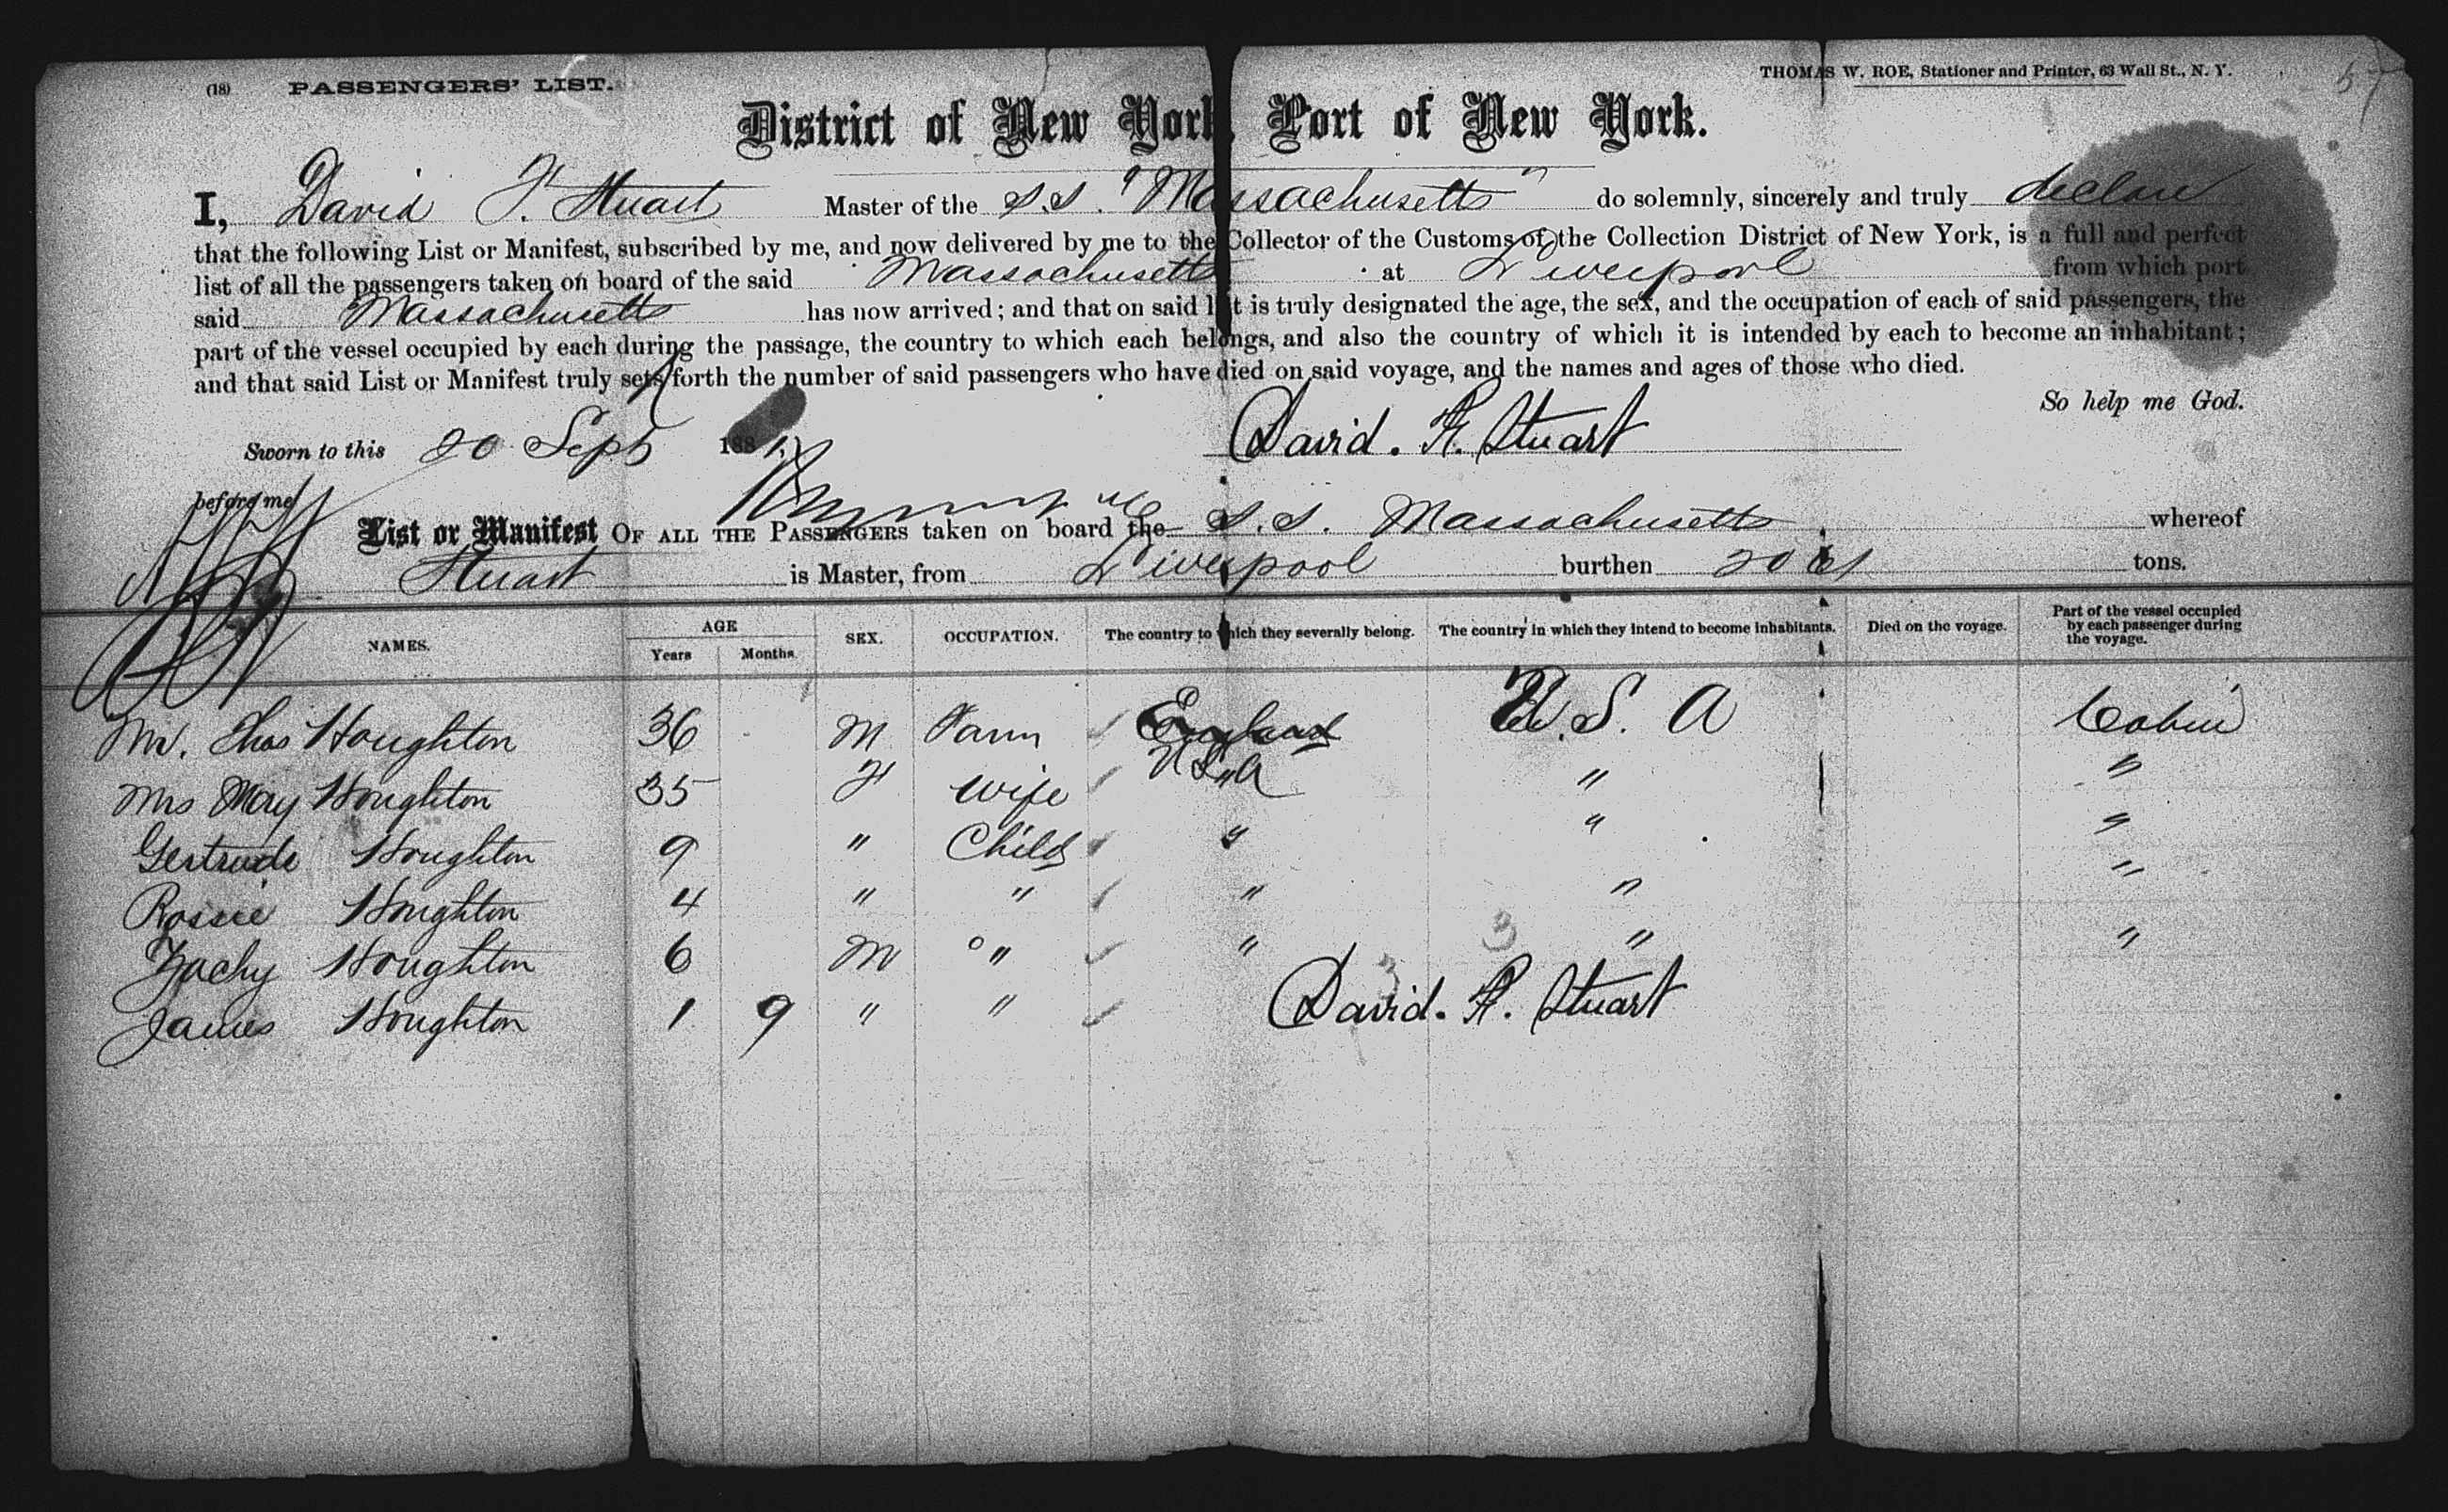 (18) PASSENGERS' LIST.
THOMAS W. ROE, Stationer and Printer, 63 Wall St., N. Y.
57
District of New York, Port of New York.
I, David F. Stuart Master of the S.S. "Massachusetts" do solemnly, sincerely and truly declare
that the following List or Manifest, subscribed by me, and now delivered by me to the Collector of the Customs of the Collection District of New York, is a full and perfect
list of all the passengers taken on board of the said Massachusetts at Liverpool from which port
said Massachusetts has now arrived; and that on said list is truly designated the age, the sex, and the occupation of each of said passengers, the
part of the vessel occupied by each during the passage, the country to which each belongs, and also the country of which it is intended by each to become an inhabitant;
and that said List or Manifest truly sets forth the number of said passengers who have died on said voyage, and the names and ages of those who died.
So help me God.
Sworn to this 20 Sept 188 David. F. Stuart
before me
List or Manifest OF ALL THE PASSENGERS taken on board the S.S. Massachusetts whereof
Stuart is Master, from Liverpool burthen tons.
NAMES. AGE Years Months. SEX. OCCUPATION. The country to which they severally belong. The country in which they intend to become inhabitants. Died on the voyage. Part of the vessel occupied by each passenger during the voyage.
Mr. Thos Houghton 36 M Farm England U.S.A Cabin
U.S.A
Mrs May Houghton 35 F Wife " " "
Gertrude Houghton 9 " Child " " "
Rossie Houghton 4 " " " " "
Zachy Houghton 6 M " " " "
James Houghton 1 9 " "
David. F. Stuart